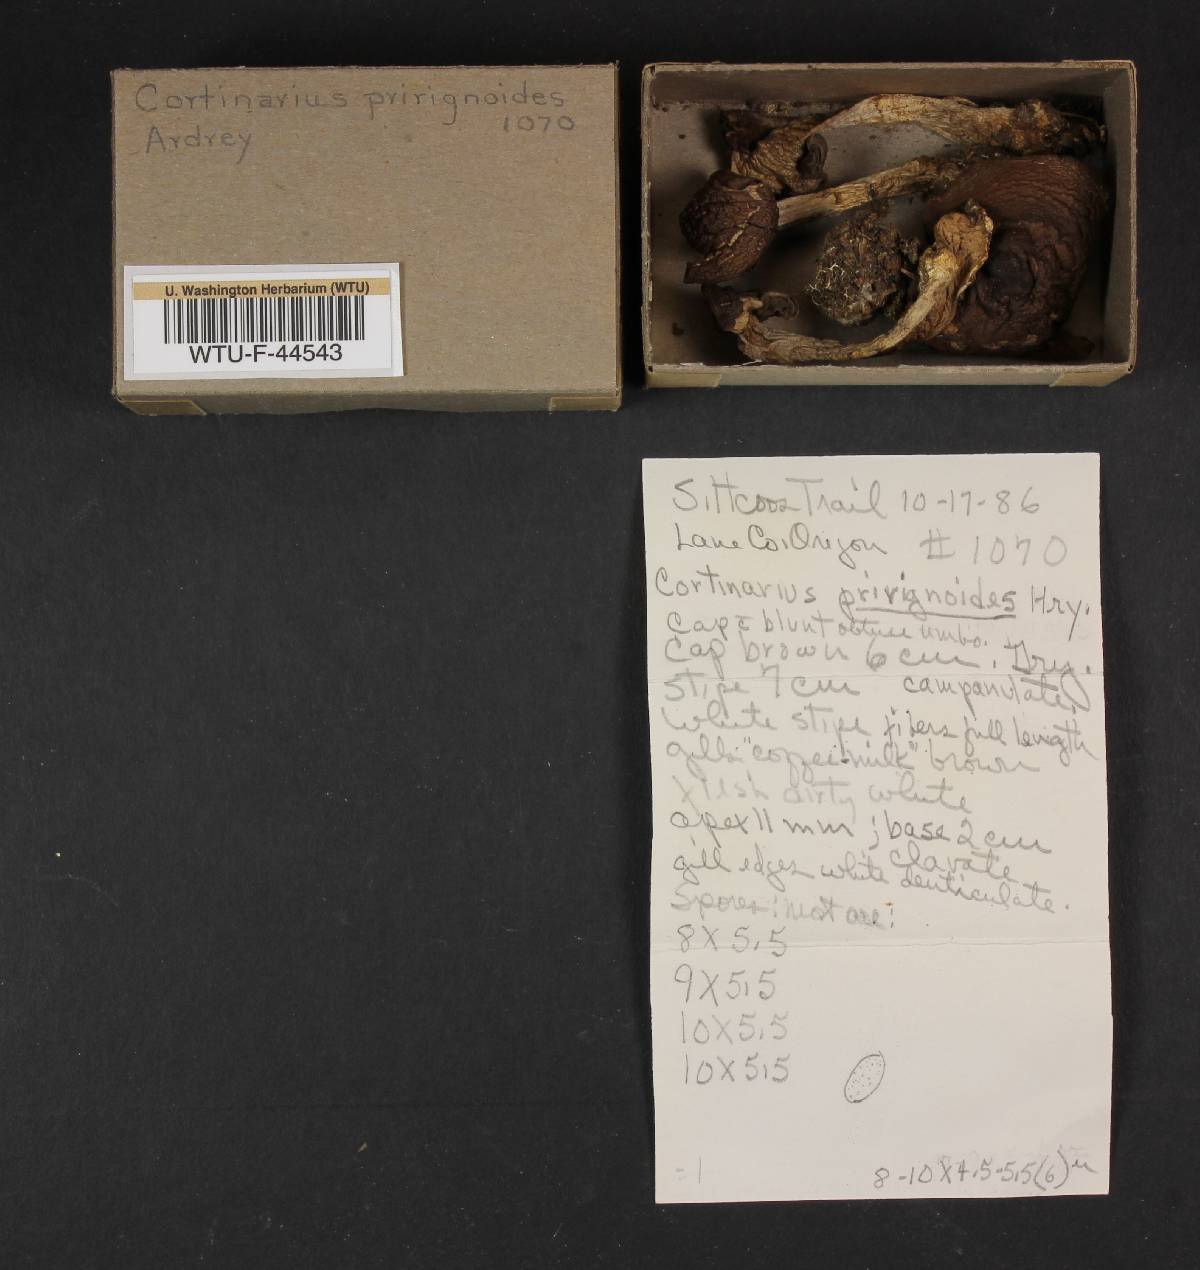 Cortinarius prirignoides
1070
Ardrey
U. Washington Herbarium (WTU)
WTU-F-44543
Siltcoos Trail 10-17-86
Lane Co, Oregon # 1070
Cortinarius prirignoides Hry.
Cap c̄ blunt obtuse umbo.
Cap brown 6 cm. Dry.
Stipe 7 cm campanulate,
White stipe fibers full length
gills "coffee-milk" brown
flesh dirty white
apex 11 mm ; base 2 cm
clavate
gill edges white denticulate.
Spores: most are:
8 X 5,5
9 X 5,5
10 X 5,5
10 X 5,5
8-10 X 4,5-5,5(6) u